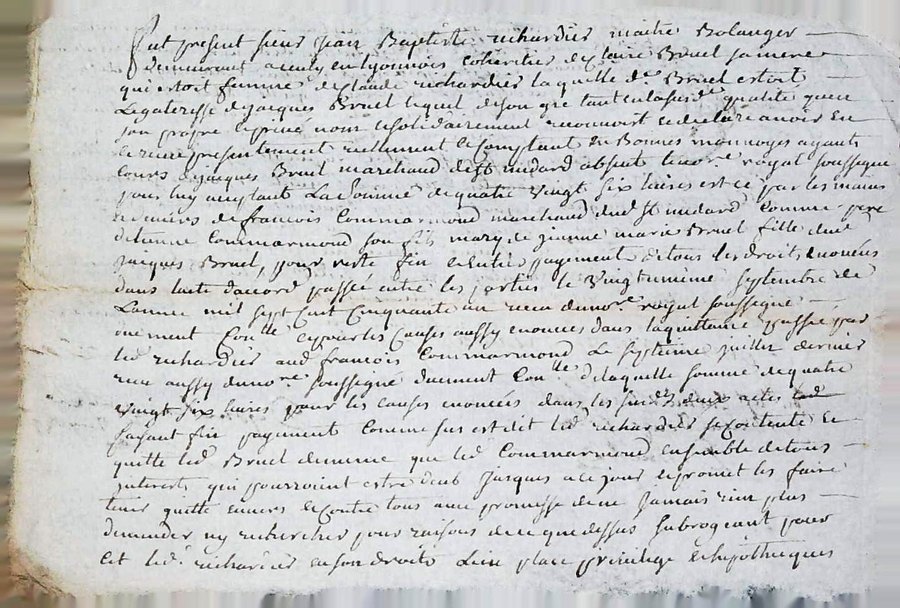 fut present sieur jean Baptiste richardier maitre Bolanger
demeurant a cuzy en lyonnois coheritier de claire Bruel sa mere
qui estoit femme de claude richardier la quelle de Bruel estoit
legateresse de jacques Bruel lequel de son gre tant en la susd.e qualité qu'en
son propre et privé nom et solidairement reconnoit et declare avoir eu
et receu presentement reellement et comptant en Bonnes monnoyes ayants
cours de jacques Bruel marchand de st medard absent le no.re royal soussigné
pour luy acceptant La somme de quatre vingt six livres et ce par les mains
et deniers de françois Commarmond marchand dud st medard comme pere
d'etienne Commarmond son fils mary de jeanne marie Bruel fille dud
jacques Bruel, pour reste fin et entier payement de tous les droits enoncés
dans l'acte d'accord passée entre les parties le vingt unieme septembre de
L'année mil sept cent cinquante un receu du no.re royal soussigné
duement Con.lle et pour les causes aussy enoncées dans la quittance passée par
led richardier aud françois Commarmond Le septieme juillet dernier
receu aussy du no.re soussigné duement Con.lle de laquelle somme de quatre
vingt six livres pour les causes enoncées dans les susd.s deux actes
faisant fin payement comme sus est dit led richardier se contente et
quitte led Bruel de meme que led Commarmond ensemble de tous
interets qui pourroient estre deub jusques a ce jour et promet les faire
tenir quitte envers et contre tous avec promesse de ne jamais rien plus
demander ny rechercher pour raisons de ce que dessus subrogeant pour
cet led richardier en son droits Lieu place privilege et hipotheques